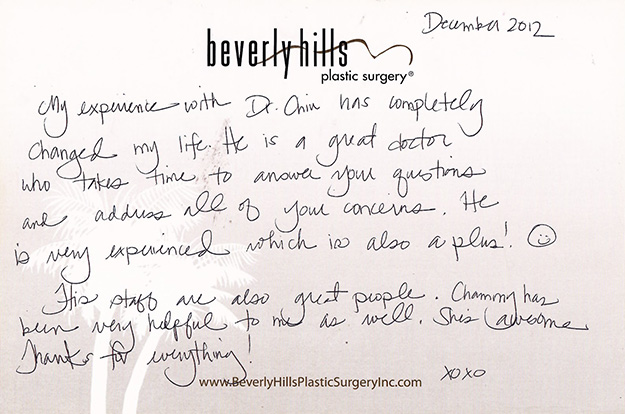 December 2012
beverly hills
plastic surgery®
My experience with Dr. Chiu has completely
changed my life. He is a great doctor
who takes time to answer your questions
and address all of your concerns. He
is very experienced which is also a plus! ☺
His staff are also great people. Chammy has
been very helpful to me as well. She's awesome
Thanks for everything!
xoxo
www.BeverlyHillsPlasticSurgeryInc.com